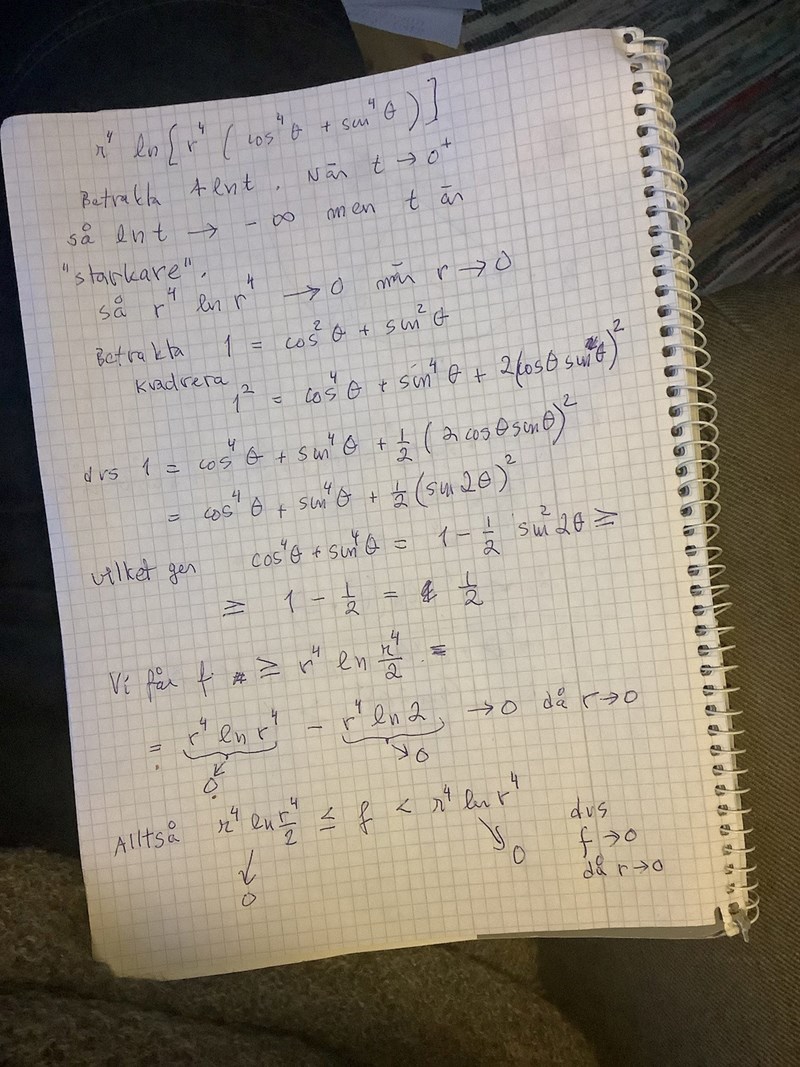 r⁴ ln[r⁴(cos⁴θ + sin⁴θ)]
Betrakta t ln t. När t → 0⁺
så ln t → -∞ men t är
"starkare".
så r⁴ ln r⁴ → 0 när r → 0
Betrakta 1 = cos²θ + sin²θ
kvadrera 1² = cos⁴θ + sin⁴θ + 2(cosθ sinθ)²
dvs 1 = cos⁴θ + sin⁴θ + ½(2 cosθ sinθ)²
= cos⁴θ + sin⁴θ + ½(sin 2θ)²
vilket ger cos⁴θ + sin⁴θ = 1 - ½ sin²2θ ≥
≥ 1 - ½ = ½
Vi får f ≥ r⁴ ln r⁴/2 =
= r⁴ ln r⁴ - r⁴ ln 2, → 0 då r → 0
↙ 0 ↘ 0
Alltså r⁴ ln r⁴/2 ≤ f < r⁴ ln r⁴ dvs
↓ 0 ↘ 0 f → 0
då r → 0